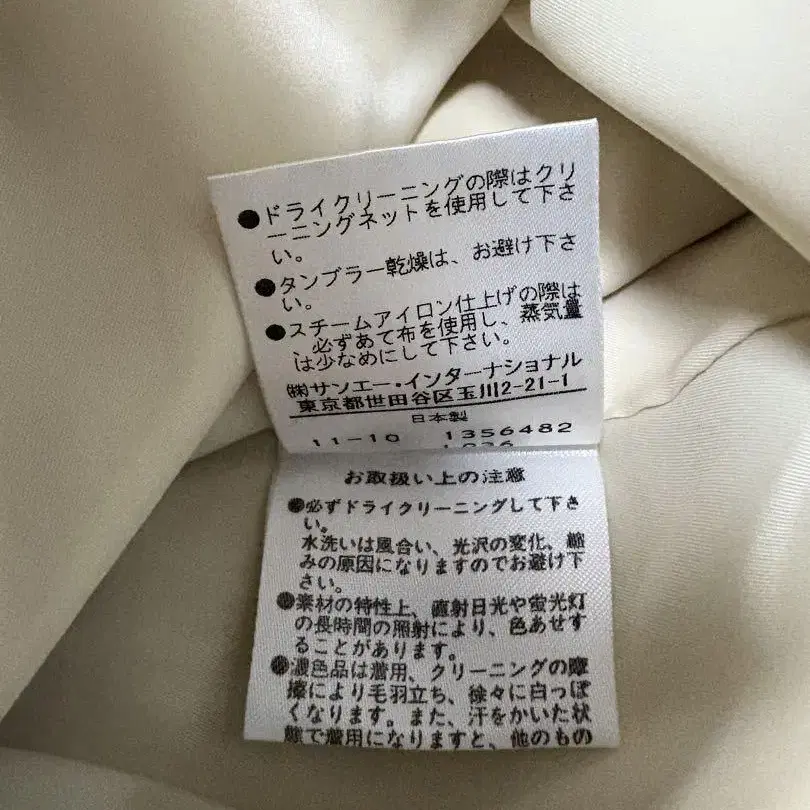 ●ドライクリーニングの際はクリ
ーニングネットを使用して下さ
い。
●タンブラー乾燥は、お避け下さ
い。
●スチームアイロン仕上げの際は
、必ずあて布を使用し、蒸気量
は少なめにして下さい。
㈱サンエー・インターナショナル
東京都世田谷区玉川2-21-1
日本製
11-10 1356482
お取扱い上の注意
●必ずドライクリーニングして下さ
い。
水洗いは風合い、光沢の変化、縮
みの原因になりますのでお避け下
さい。
●素材の特性上、直射日光や蛍光灯
の長時間の照射により、色あせす
ることがあります。
●濃色品は着用、クリーニングの摩
擦により毛羽立ち、徐々に白っぽ
くなります。また、汗をかいた状
態で着用になりますと、他のもの